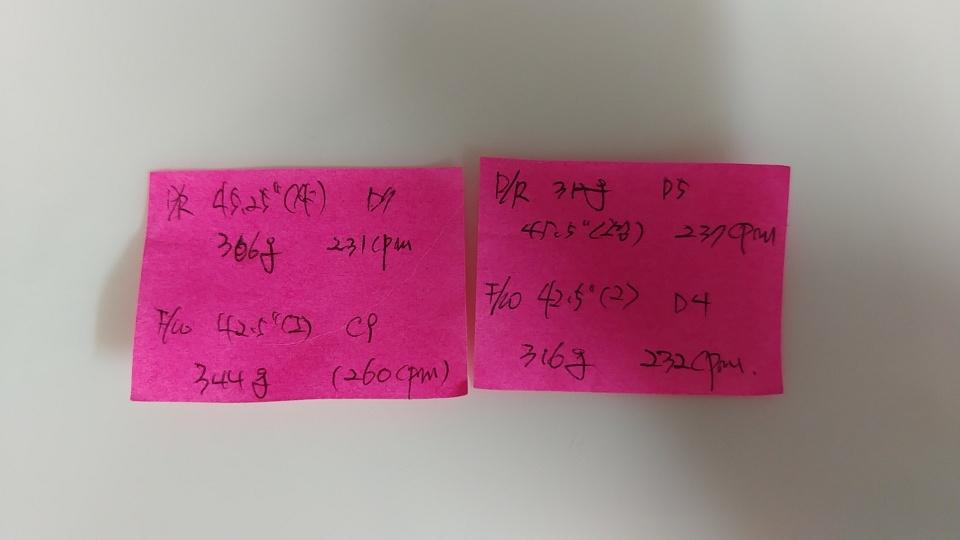 D/R 45.25" D7
306g 231cpm
F/W 42.5" (I) C9
344g (260cpm)
D/R 317g D5
45.5" 237cpm
F/W 42.5" (2) D4
316g 232cpm.